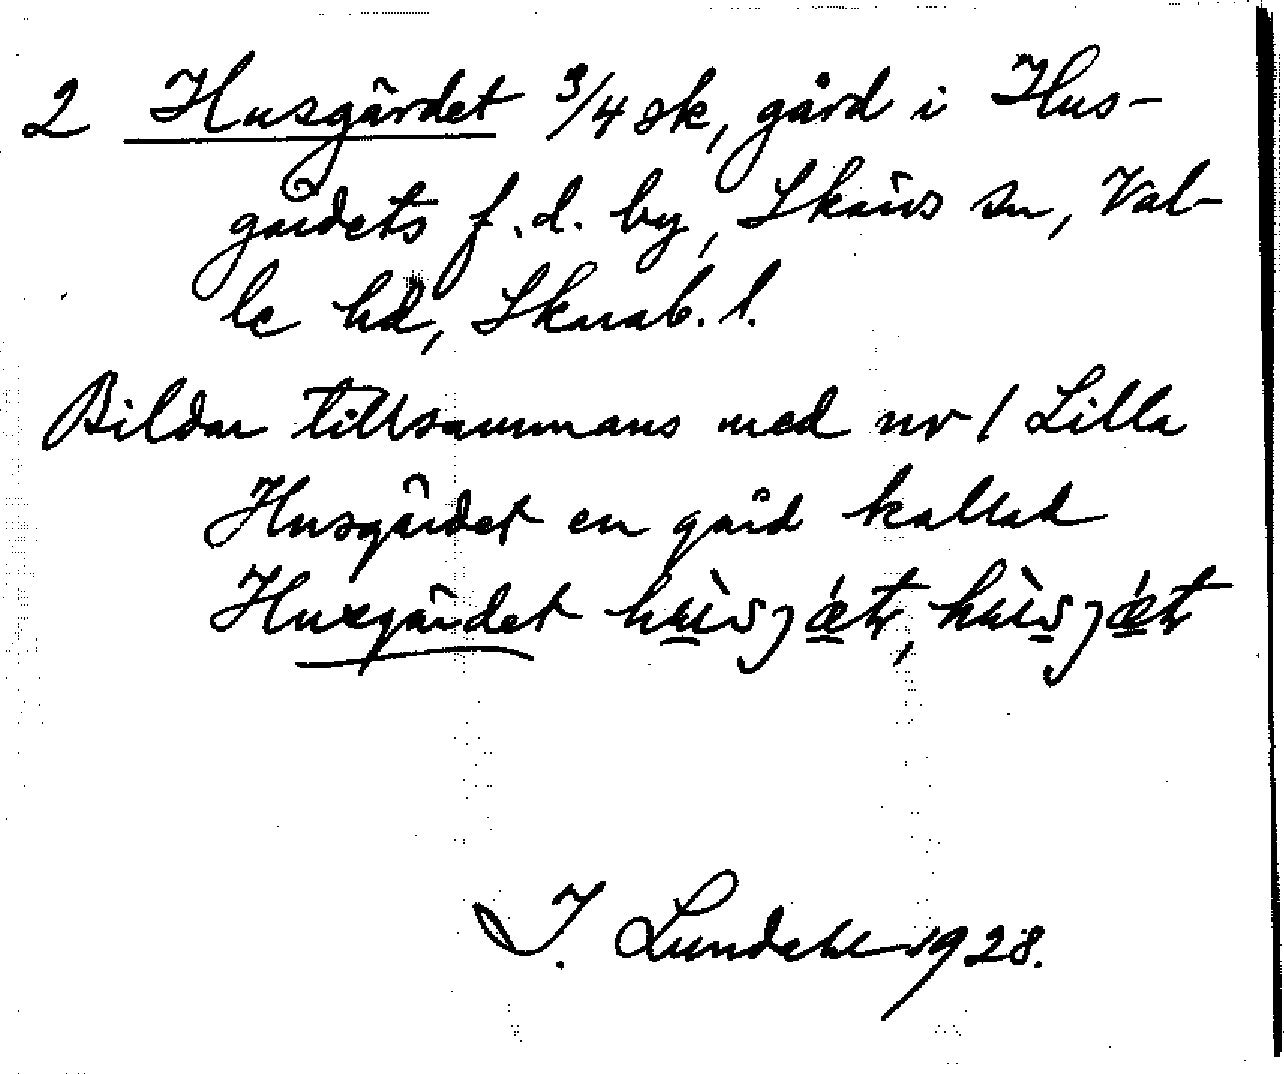 2 Husgärdet 3/4 sk, gård i Hus-
gärdets f.d. by, Skärvs sn, Val-
le hd, Skarab. l.
Bildar tillsammans med nr 1 Lilla
Husgärdet en gård kallad
Huxgärdet
I. Lundahl 1928.